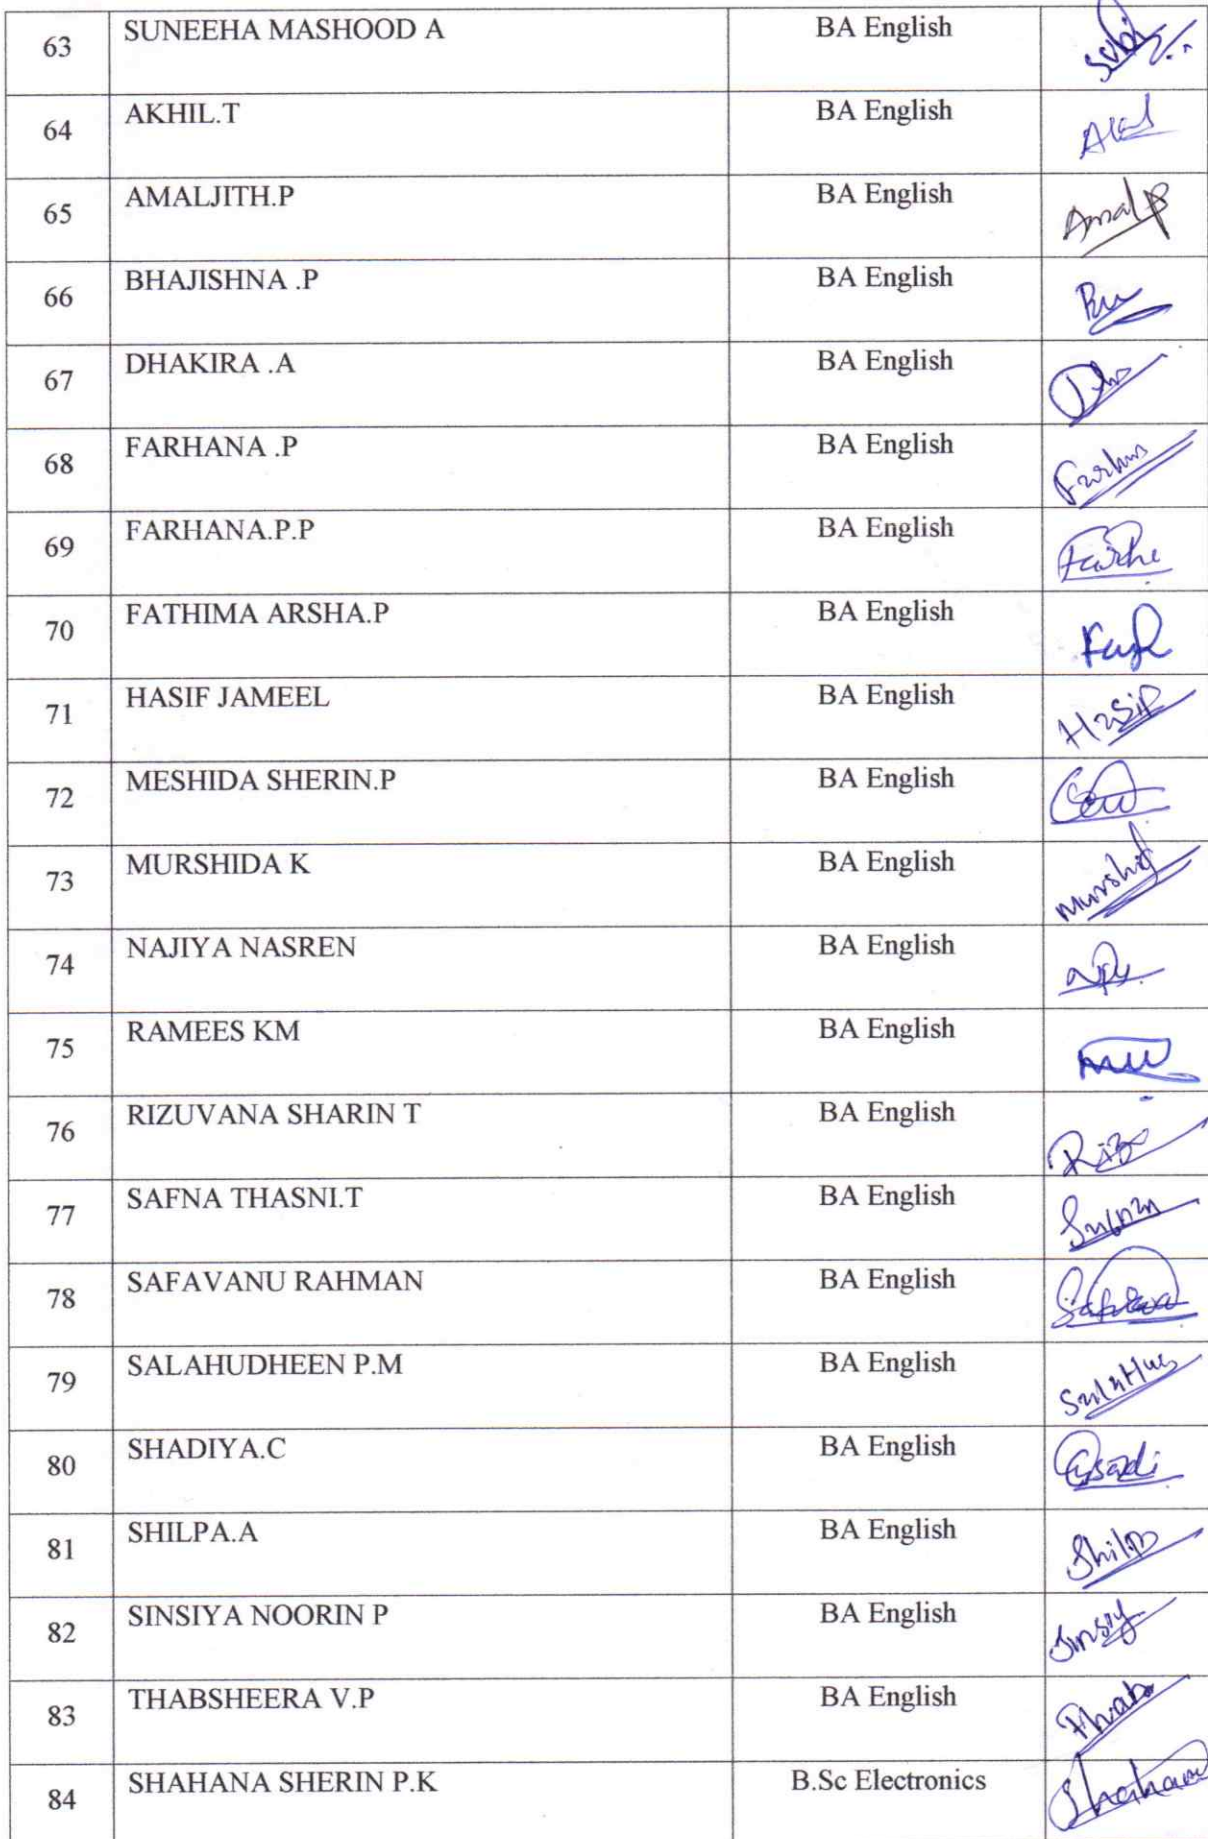 63 SUNEEHA MASHOOD A BA English
64 AKHIL.T BA English
65 AMALJITH.P BA English Amal P
66 BHAJISHNA .P BA English
67 DHAKIRA .A BA English
68 FARHANA .P BA English
69 FARHANA.P.P BA English
70 FATHIMA ARSHA.P BA English
71 HASIF JAMEEL BA English Hasif
72 MESHIDA SHERIN.P BA English
73 MURSHIDA K BA English Murshid
74 NAJIYA NASREN BA English
75 RAMEES KM BA English
76 RIZUVANA SHARIN T BA English
77 SAFNA THASNI.T BA English
78 SAFAVANU RAHMAN BA English
79 SALAHUDHEEN P.M BA English
80 SHADIYA.C BA English
81 SHILPA.A BA English
82 SINSIYA NOORIN P BA English
83 THABSHEERA V.P BA English
84 SHAHANA SHERIN P.K B.Sc Electronics